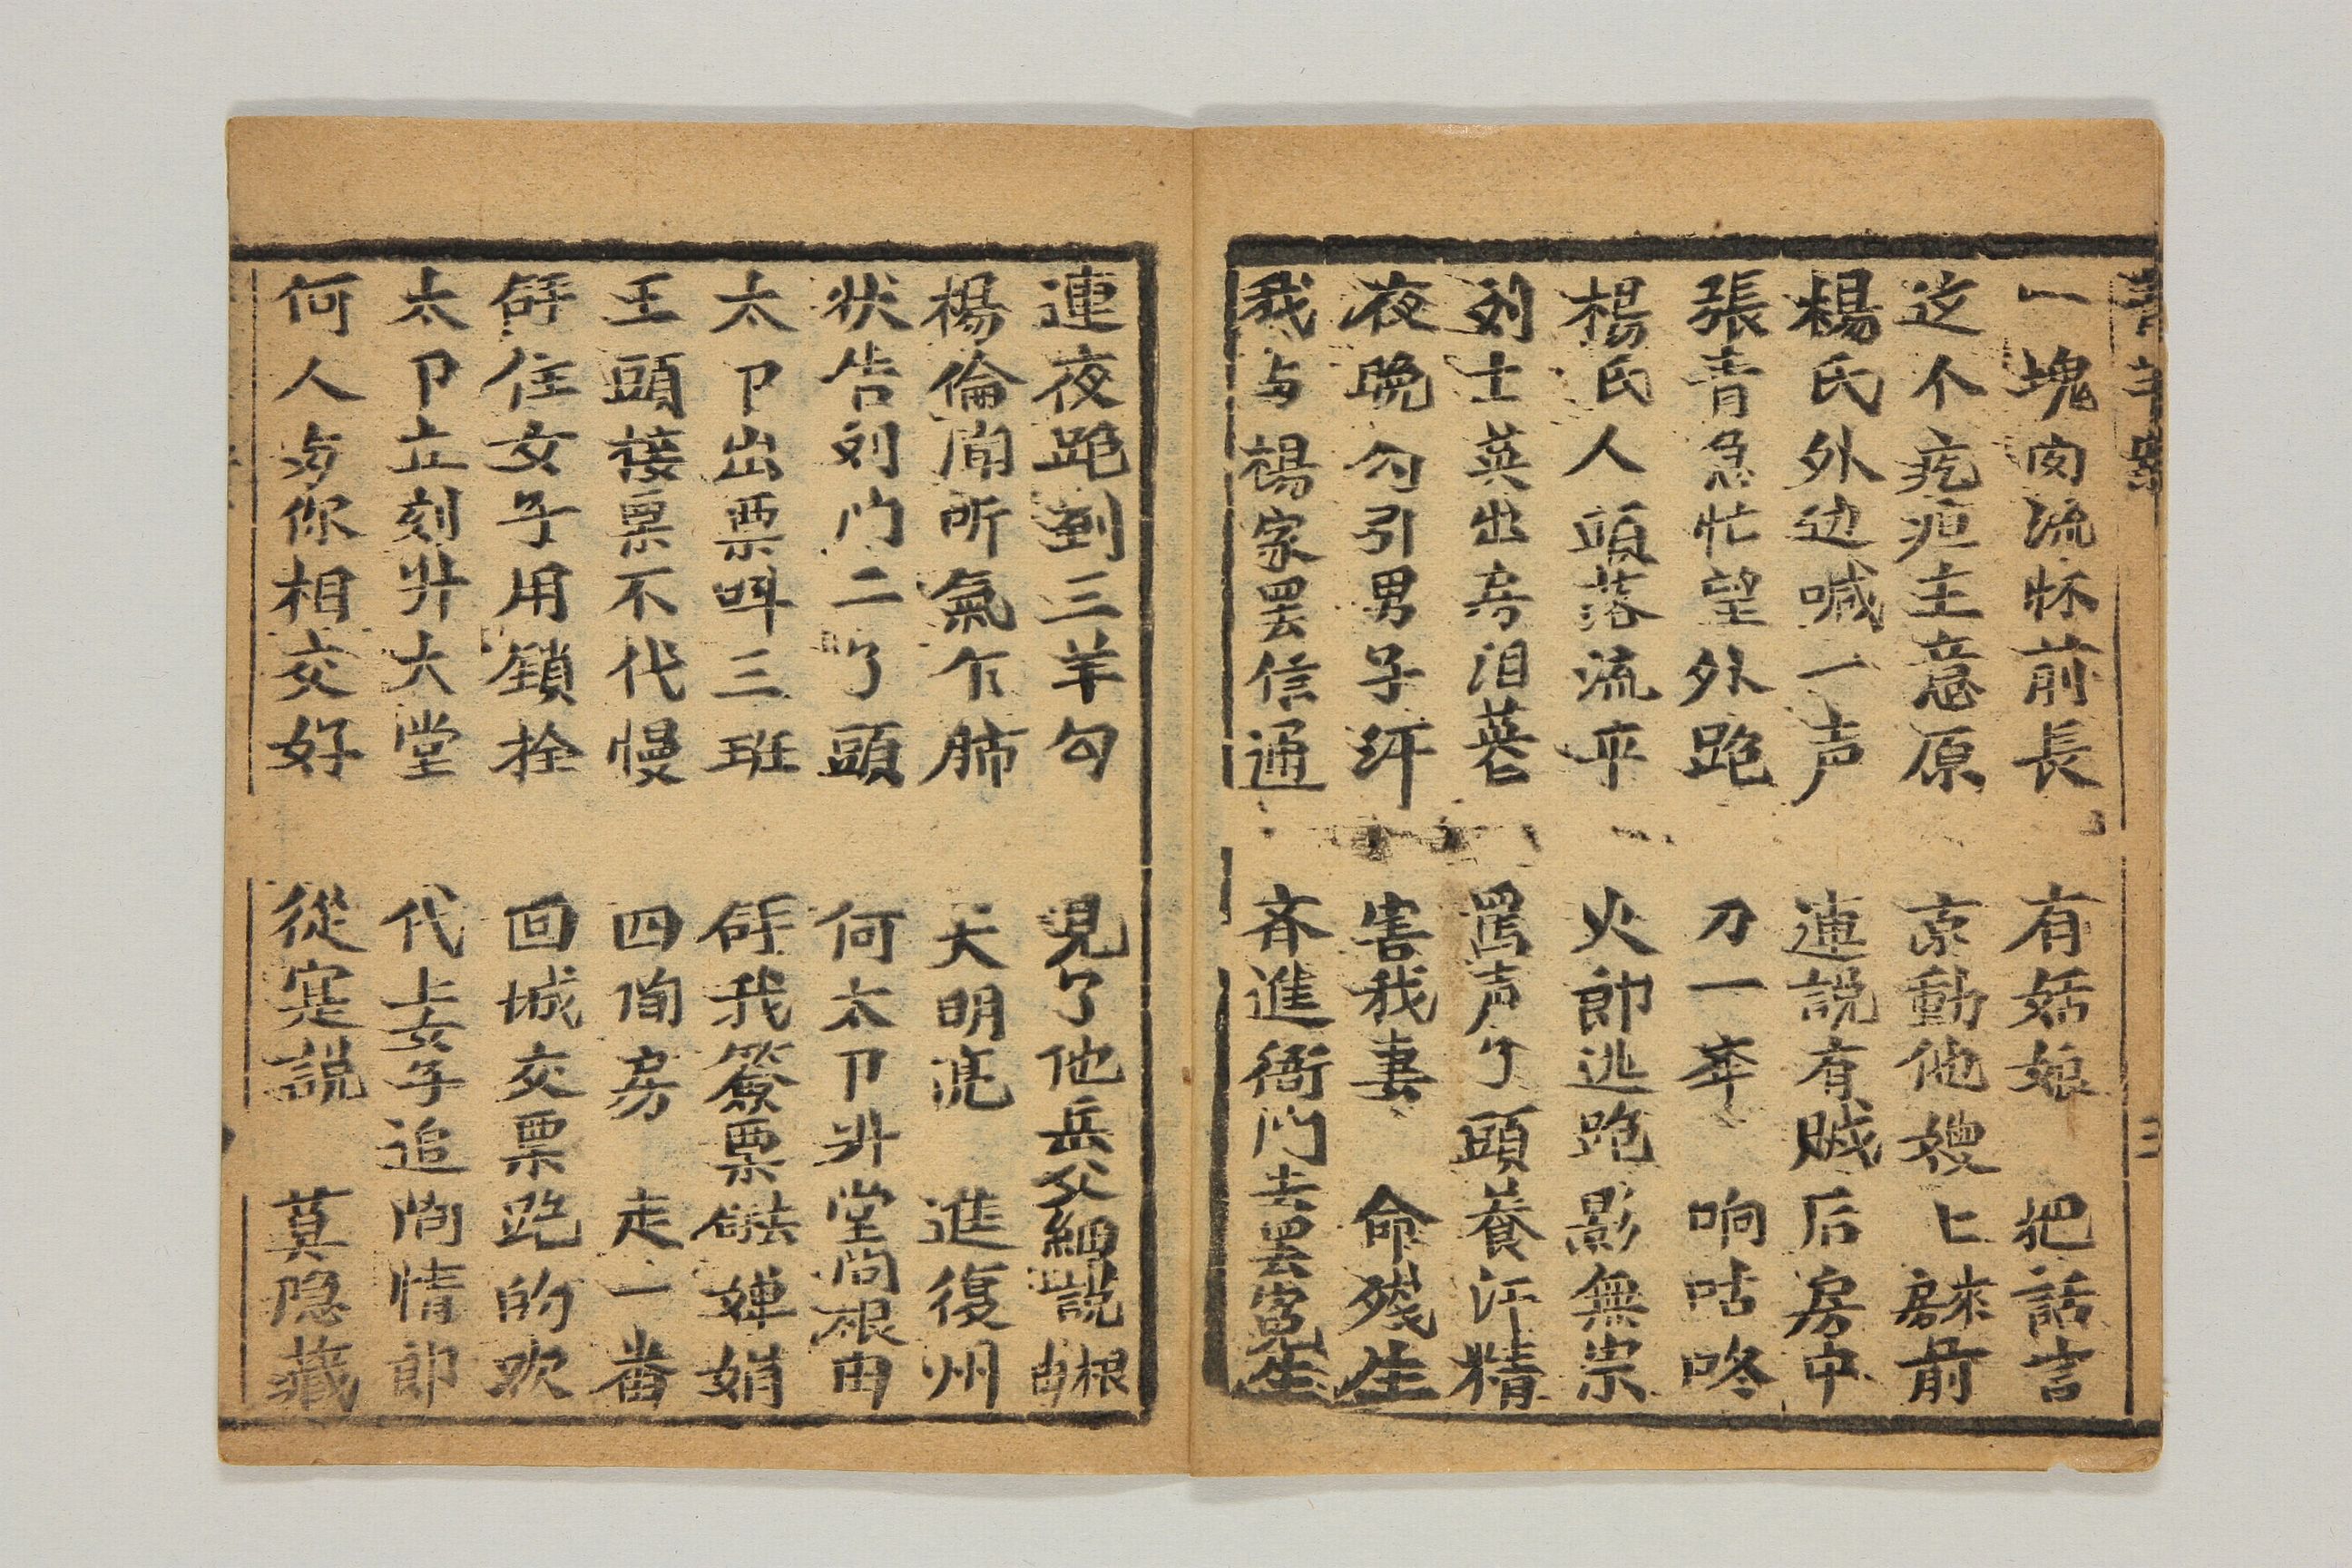 一塊肉流怀前長　有姑娘　把話言
这不疙疸主意原　京動他嫂上房來前
楊氏外边喊一声　連說有賊后房中
張青急忙望外跑　刀一奔　响咕咚
楊氏人頭落流平　火郎逃跑影無宗
刘士英出房泪蒼　罵声了頭養汗精
夜晚勾引男子汗　害我妻　命殘生
我与楊家罢信通　齐進衙門去罢寃生
連夜跑到三羊勾　見了他岳父細說根由
楊倫闻听氣乍肺　天明亮　進復州
状告刘门二了頭　何太卩升堂问根由
太卩出票呌三班　我簽票　嬋娟
王頭接票不代慢　四個房　走一番
住女子用鎖拴　回城交票跑的欢
太卩立刻升大堂　代上女子追问情郎
何人与你相交好　從寔說　莫隐藏